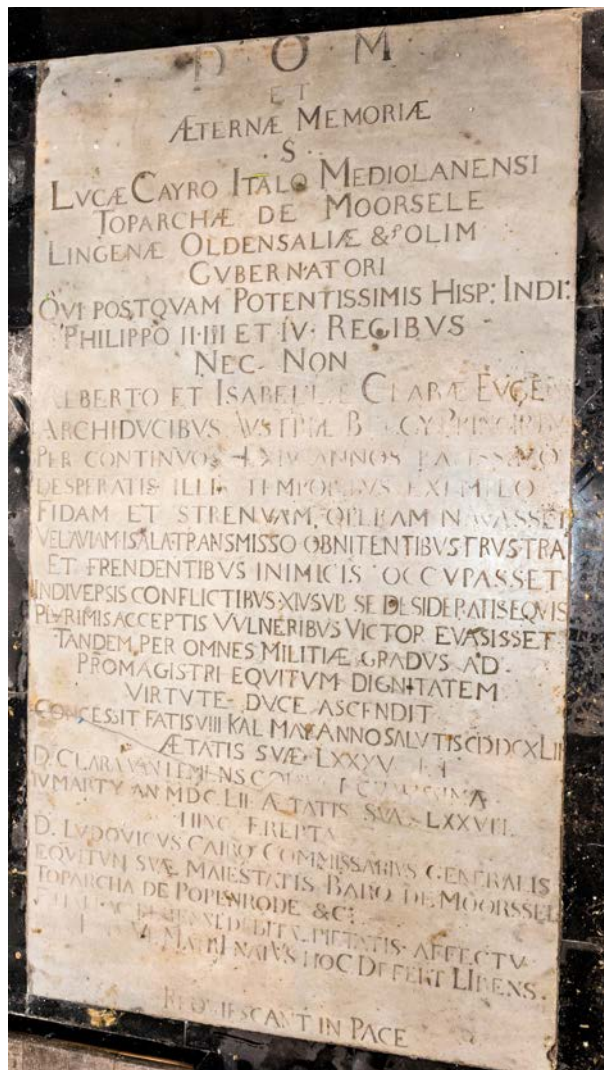 D O M
ET
ÆTERNÆ MEMORIÆ
S
LVCÆ CAYRO ITALO MEDIOLANENSI
TOPARCHÆ DE MOORSELE
LINGENÆ OLDENSALIÆ & OLIM
GVBERNATORI
QVI POSTQVAM POTENTISSIMIS HISP: INDI:
PHILIPPO II·III ET IV· REGIBVS
NEC· NON
ALBERTO ET ISABELLÆ CLARÆ EVGE
ARCHIDVCIBVS AVSTRIÆ BELGY PRINCIPIBV
PER CONTINVOS ANNOS
DESPERATIS ILLIS TEMPORIBVS EXEMPLO
FIDAM ET STRENVAM OPERAM NAVASSET
VELAVIAM ISALA TRANSMISSO OBNITENTIBVS FRVSTRA
ET FRENDENTIBVS INIMICIS OCCVPASSET
INDIVERSIS CONFLICTIBVS XIV SVB SE DESIDERATIS EQVIS
PLVRIMIS ACCEPTIS VVLNERIBVS VICTOR EVASISSET
TANDEM PER OMNES MILITIÆ GRADVS AD
PROMAGISTRI EQVITVM DIGNITATEM
VIRTVTE DVCE ASCENDIT
CONCESSIT FATIS VIII KAL MAY ANNO SALVTIS
ÆTATIS SVÆ LXXV
D. CLARA VAN
MARTY AN MDC LII ÆTATIS SVÆ LXXVII
HINC EREPTA
D. LVDOVICVS CAIRO COMMISSARIVS GENERALIS
EQVITVN SVÆ MAIESTATIS BARO DE MOORSSEL
TOPARCHA DE POPENRODE &C
PIETATIS AFFECTV
MATRI NATVS HOC DEFERT LIBENS.
REQVIESCANT IN PACE